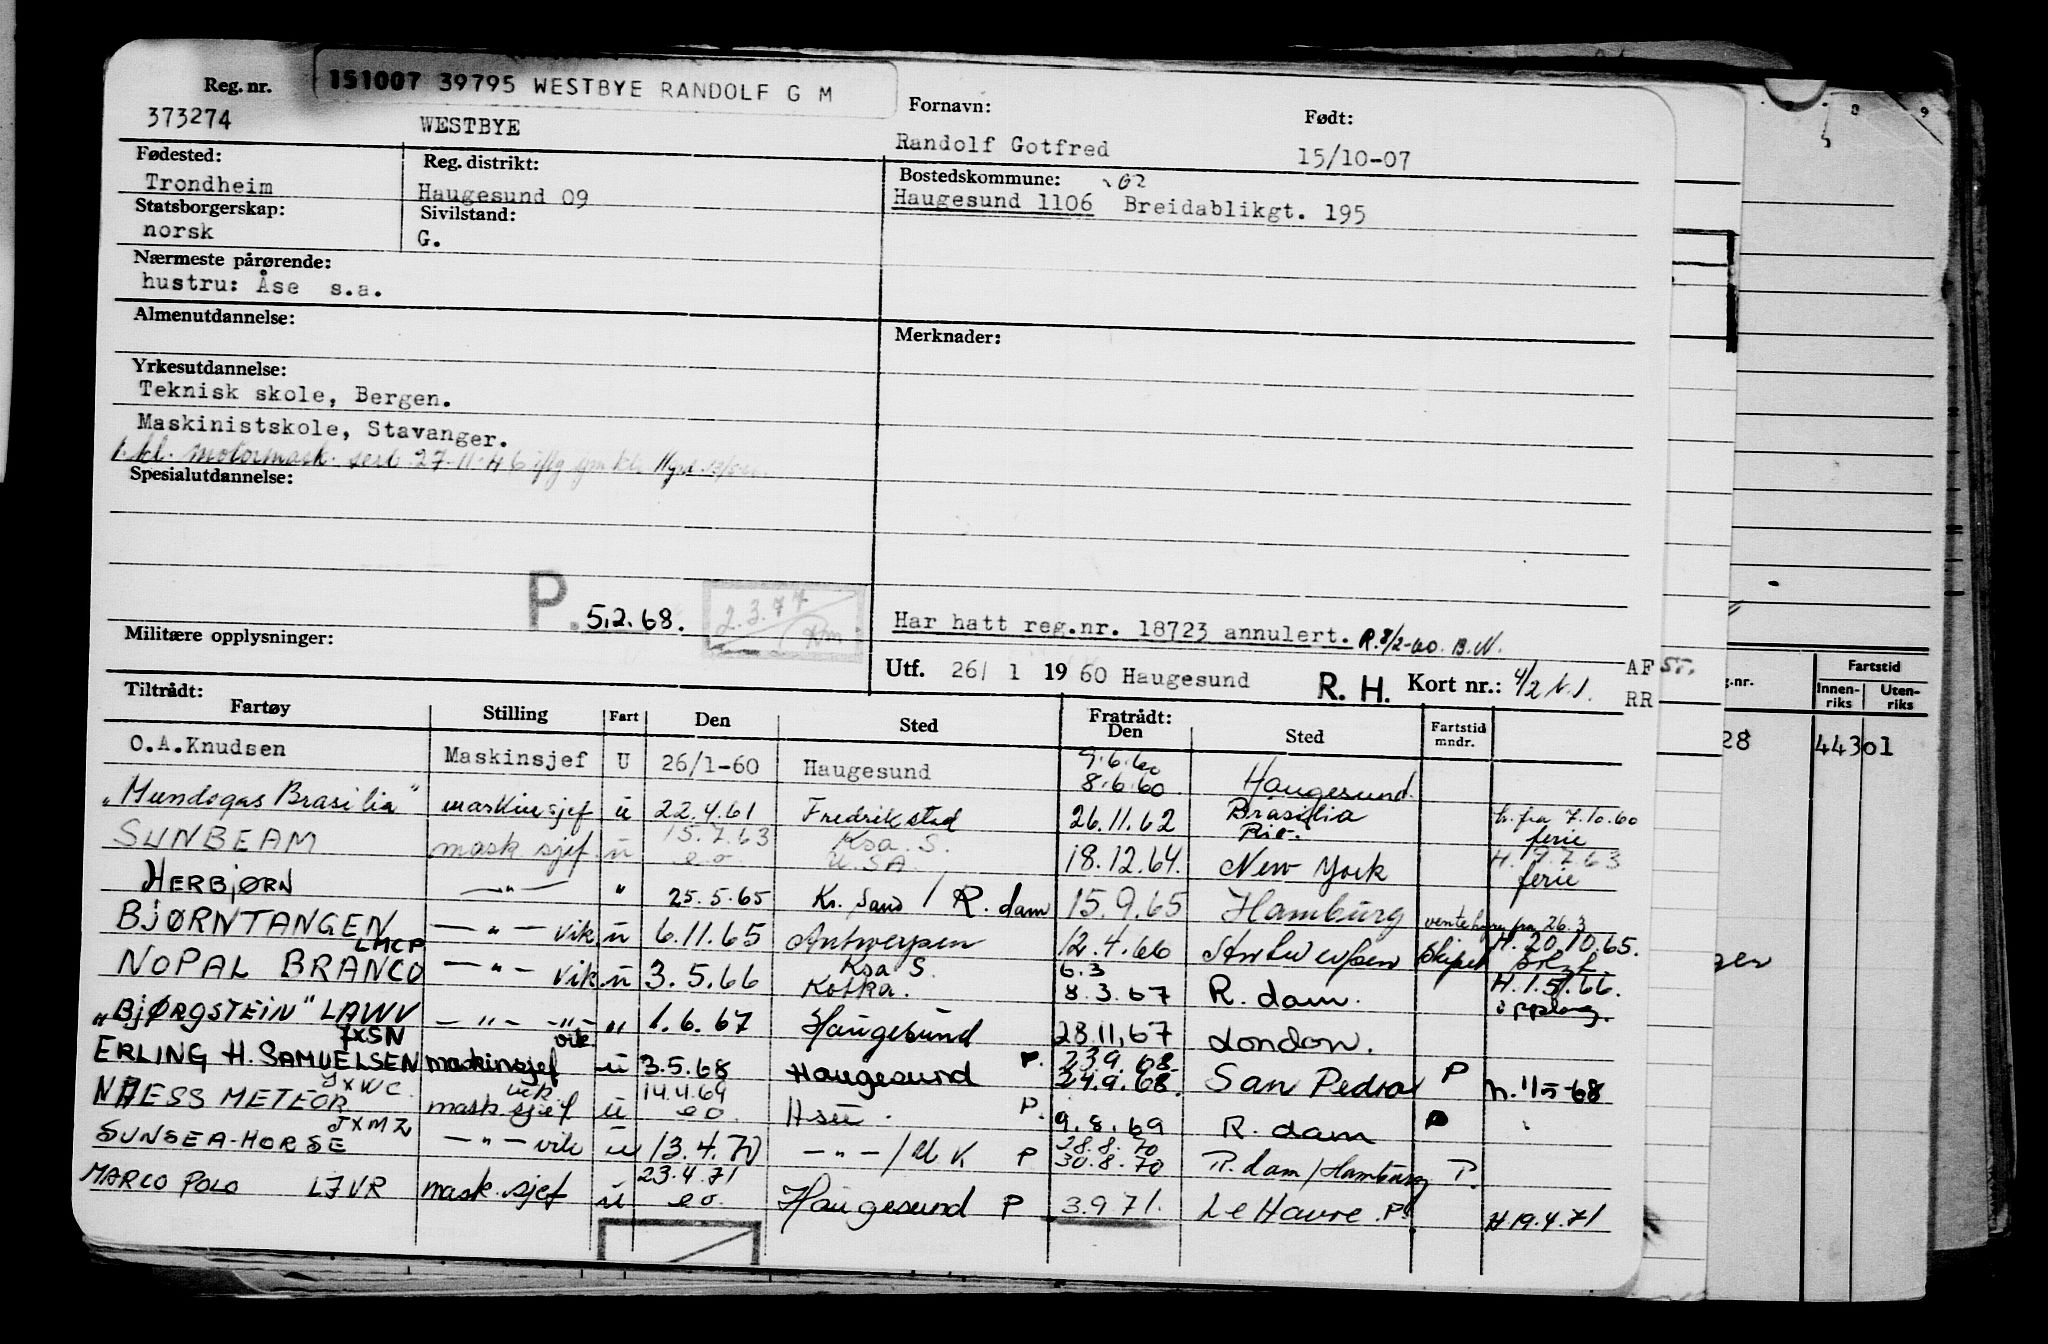 151007 39795 WESTBYE RANDOLF G M
Reg. nr. Fornavn: Født:
373274 WESTBYE Randolf Gotfred 15/10-07
Fødested: Reg. distrikt: Bostedskommune:
Trondheim Haugesund 09 Haugesund 1106 Breidablikgt. 195
Statsborgerskap: Sivilstand:
norsk G.
Nærmeste pårørende:
hustru: Åse s.a.
Almenutdannelse: Merknader:
Yrkesutdannelse:
Teknisk skole, Bergen.
Maskinistskole, Stavanger.
1. kl. motormask. sert. 27-11-46
Spesialutdannelse:
P. 5.2.68. 2.3.77
Har hatt reg.nr. 18723 annulert. R.8/2-60. B.N.
Militære opplysninger:
Utf. 26/ 1 19 60 Haugesund R. H. Kort nr.: 4/2 AF
RR
Tiltrådt: Fratrådt:
Fartøy Stilling Fart Den Sted Den Sted Fartstid mndr.
O.A.Knudsen Maskinsjef U 26/1-60 Haugesund 9.6.60 8.6.60 Haugesund
"Mundogas Brasilia" maskinsjef u 22.4.61 Fredrikstad 26.11.62 Brasilia Rio. h. fra 7.10.60 ferie
SUNBEAM mask sjef. u 15.7.63 e.o. Ksa. S. USA. 18.12.64. New York ferie
HERBJØRN —"— " 25.5.65 Kr. sand / R. dam 15.9.65 Hamburg fra 26.3
BJØRNTANGEN —"— vik. u 6.11.65 Antwerpen 12.4.66 Antwerpen H. 20.10.65.
NOPAL BRANCO LMCP —"— vik. u 3.5.66 Ksa S. Kotka. 6.3 8.3.67 R. dam. H. 1.5.66.
"BJØRGSTEIN" LAWV —"— —"— " 1.6.67 Haugesund 28.11.67 London.
ERLING H. SAMUELSEN JXSN maskinsjef vik u 3.5.68 Haugesund P. 23.9.68. 24.9.68. San Pedro P h. 1/5-68
NÆSS METEOR JXWC. mask sjef vik. u 14.4.69 e o. Hsu. P. 9.8.69 R. dam P
SUNSEA-HORSE JXMZ —"— vik u 13.4.70 —"—/UK P 28.8.70 30.8.70 R. dam/Hamburg P.
MARCO POLO LJVR mask. sjef u 23.4.71 e o. Haugesund P 3.9.71. Le Havre. P. H 19.4.71
g.nr. Fartstid
Innen-riks Uten-riks
28 443 01